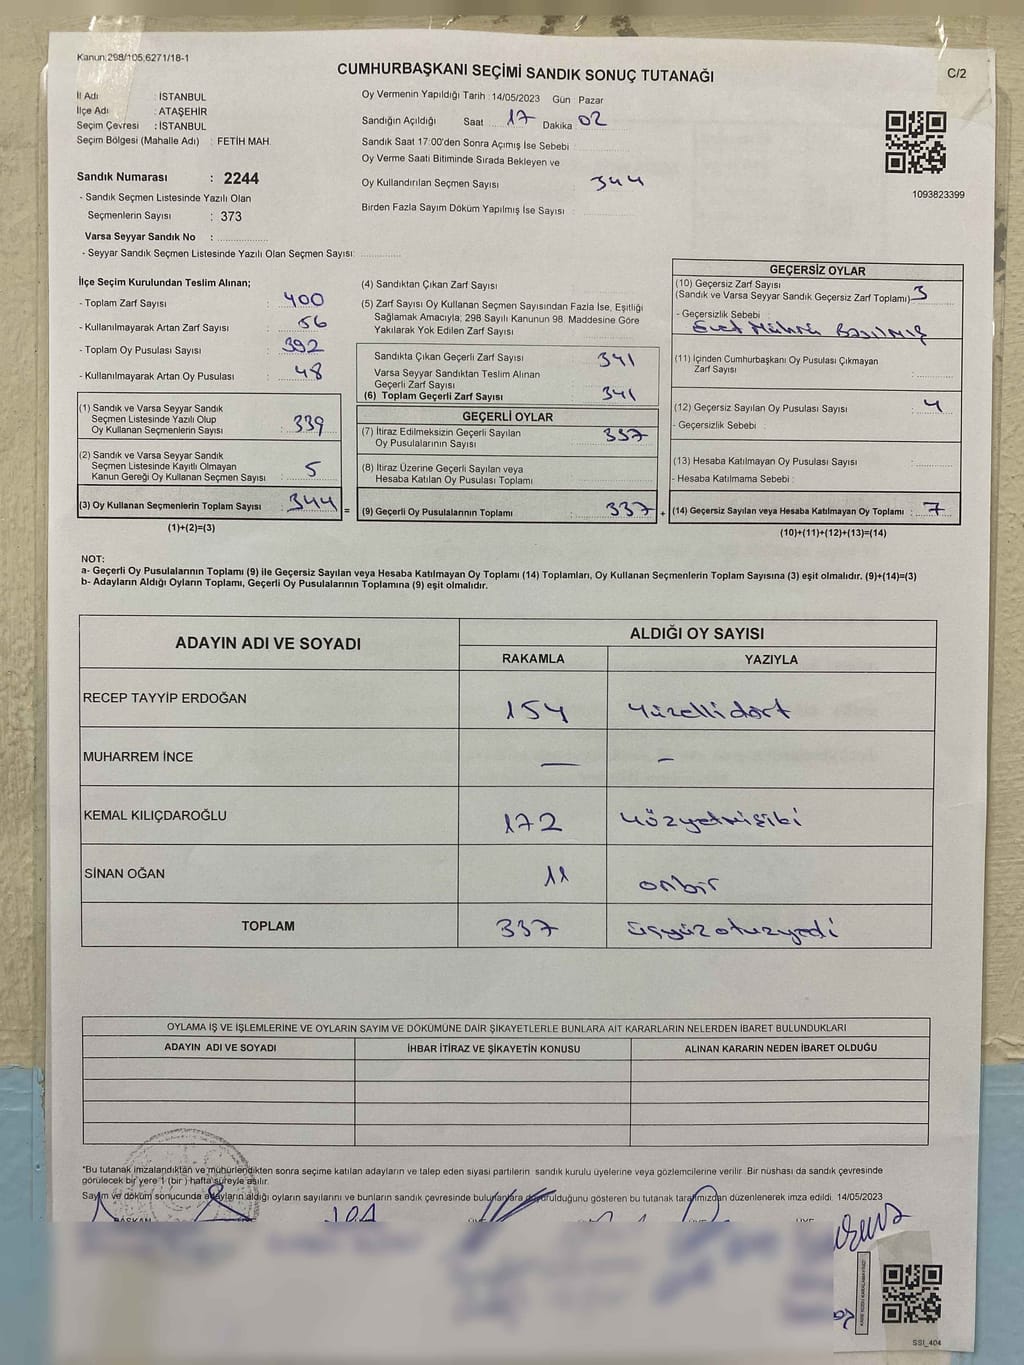 Kanun;298/105,6271/18-1
CUMHURBAŞKANI SEÇİMİ SANDIK SONUÇ TUTANAĞI
C/2
İl Adı : İSTANBUL
İlçe Adı : ATAŞEHİR
Seçim Çevresi : İSTANBUL
Seçim Bölgesi (Mahalle Adı) : FETİH MAH.
Oy Vermenin Yapıldığı Tarih : 14/05/2023 Gün Pazar
Sandığın Açıldığı Saat 17 Dakika 02
Sandık Saat 17:00'den Sonra Açımış İse Sebebi :
Oy Verme Saati Bitiminde Sırada Bekleyen ve
Oy Kullandırılan Seçmen Sayısı 344
Birden Fazla Sayım Döküm Yapılmış İse Sayısı :
1093823399
Sandık Numarası : 2244
- Sandık Seçmen Listesinde Yazılı Olan
Seçmenlerin Sayısı : 373
Varsa Seyyar Sandık No :
- Seyyar Sandık Seçmen Listesinde Yazılı Olan Seçmen Sayısı:
İlçe Seçim Kurulundan Teslim Alınan;
- Toplam Zarf Sayısı : 400
- Kullanılmayarak Artan Zarf Sayısı : 56
- Toplam Oy Pusulası Sayısı : 392
- Kullanılmayarak Artan Oy Pusulası : 48
(1) Sandık ve Varsa Seyyar Sandık
Seçmen Listesinde Yazılı Olup
Oy Kullanan Seçmenlerin Sayısı : 339
(2) Sandık ve Varsa Seyyar Sandık
Seçmen Listesinde Kayıtlı Olmayan
Kanun Gereği Oy Kullanan Seçmen Sayısı : 5
(3) Oy Kullanan Seçmenlerin Toplam Sayısı : 344 =
(1)+(2)=(3)
(4) Sandıktan Çıkan Zarf Sayısı :
(5) Zarf Sayısı Oy Kullanan Seçmen Sayısından Fazla İse, Eşitliği
Sağlamak Amacıyla; 298 Sayılı Kanunun 98. Maddesine Göre
Yakılarak Yok Edilen Zarf Sayısı :
Sandıkta Çıkan Geçerli Zarf Sayısı 341
Varsa Seyyar Sandıktan Teslim Alınan
Geçerli Zarf Sayısı :
(6) Toplam Geçerli Zarf Sayısı 341
GEÇERLİ OYLAR
(7) İtiraz Edilmeksizin Geçerli Sayılan
Oy Pusulalarının Sayısı : 337
(8) İtiraz Üzerine Geçerli Sayılan veya
Hesaba Katılan Oy Pusulası Toplamı :
(9) Geçerli Oy Pusulalarının Toplamı : 337 +
GEÇERSİZ OYLAR
(10) Geçersiz Zarf Sayısı
(Sandık ve Varsa Seyyar Sandık Geçersiz Zarf Toplamı) 3
- Geçersizlik Sebebi :
Evet Mührü Basılmış
(11) İçinden Cumhurbaşkanı Oy Pusulası Çıkmayan
Zarf Sayısı :
(12) Geçersiz Sayılan Oy Pusulası Sayısı : 4
- Geçersizlik Sebebi :
(13) Hesaba Katılmayan Oy Pusulası Sayısı :
- Hesaba Katılmama Sebebi :
(14) Geçersiz Sayılan veya Hesaba Katılmayan Oy Toplamı : 7
(10)+(11)+(12)+(13)=(14)
NOT:
a- Geçerli Oy Pusulalarının Toplamı (9) ile Geçersiz Sayılan veya Hesaba Katılmayan Oy Toplamı (14) Toplamları, Oy Kullanan Seçmenlerin Toplam Sayısına (3) eşit olmalıdır. (9)+(14)=(3)
b- Adayların Aldığı Oyların Toplamı, Geçerli Oy Pusulalarının Toplamına (9) eşit olmalıdır.
ADAYIN ADI VE SOYADI
ALDIĞI OY SAYISI
RAKAMLA YAZIYLA
RECEP TAYYİP ERDOĞAN 154 yüzellidört
MUHARREM İNCE — –
KEMAL KILIÇDAROĞLU 172 yüzyetmişiki
SİNAN OĞAN 11 onbir
TOPLAM 337 üçyüzotuzyedi
OYLAMA İŞ VE İŞLEMLERİNE VE OYLARIN SAYIM VE DÖKÜMÜNE DAİR ŞİKAYETLERLE BUNLARA AİT KARARLARIN NELERDEN İBARET BULUNDUKLARI
ADAYIN ADI VE SOYADI İHBAR İTİRAZ VE ŞİKAYETİN KONUSU ALINAN KARARIN NEDEN İBARET OLDUĞU
*Bu tutanak imzalandıktan ve mühürlendikten sonra seçime katılan adayların ve talep eden siyasi partilerin sandık kurulu üyelerine veya gözlemcilerine verilir. Bir nüshası da sandık çevresinde
görülecek bir yere 1 (bir) hafta süreyle asılır.
Sayım ve döküm sonucunda adayların aldığı oyların sayılarını ve bunların sandık çevresinde bulunanlara duyurulduğunu gösteren bu tutanak tarafımızdan düzenlenerek imza edildi. 14/05/2023
BAŞKAN
SSI_404